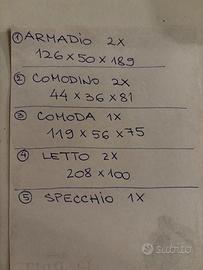 ① ARMADIO 2X
126 × 50 × 189
② COMODINO 2X
44 × 36 × 81
③ COMODA 1X
119 × 56 × 75
④ LETTO 2X
208 × 100
⑤ SPECCHIO 1X
subito